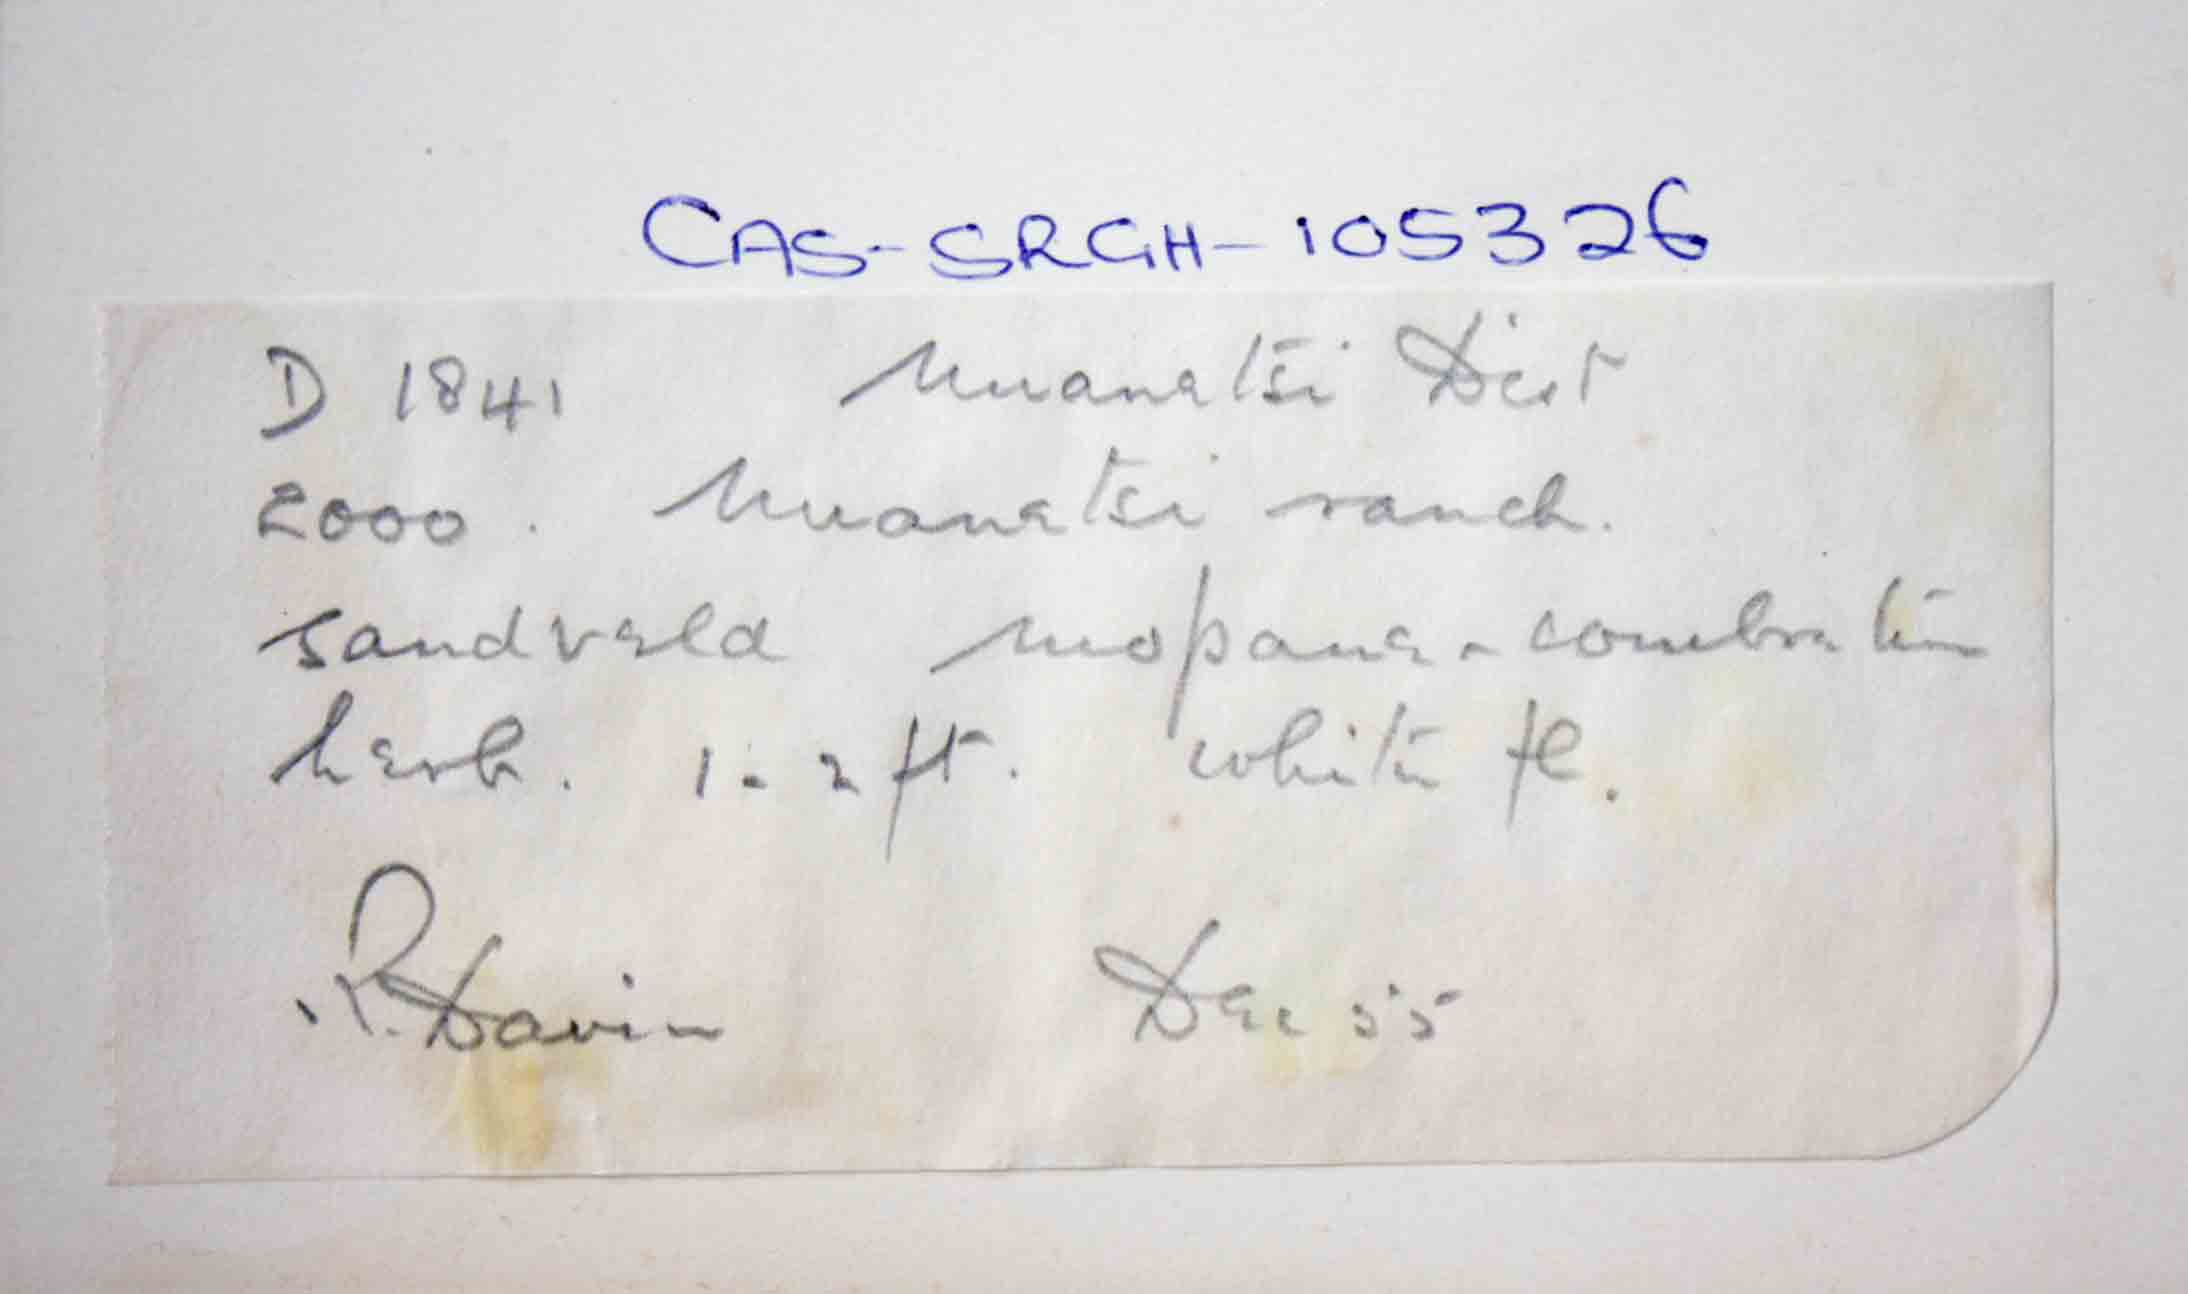 CAS-SRGH-105326
D 1841 Nuanetsi Dist
2000. Nuanetsi ranch.
sandveld mopane-combretum
herb. 1-2 ft. white fl.
R. Davies
Dec 55